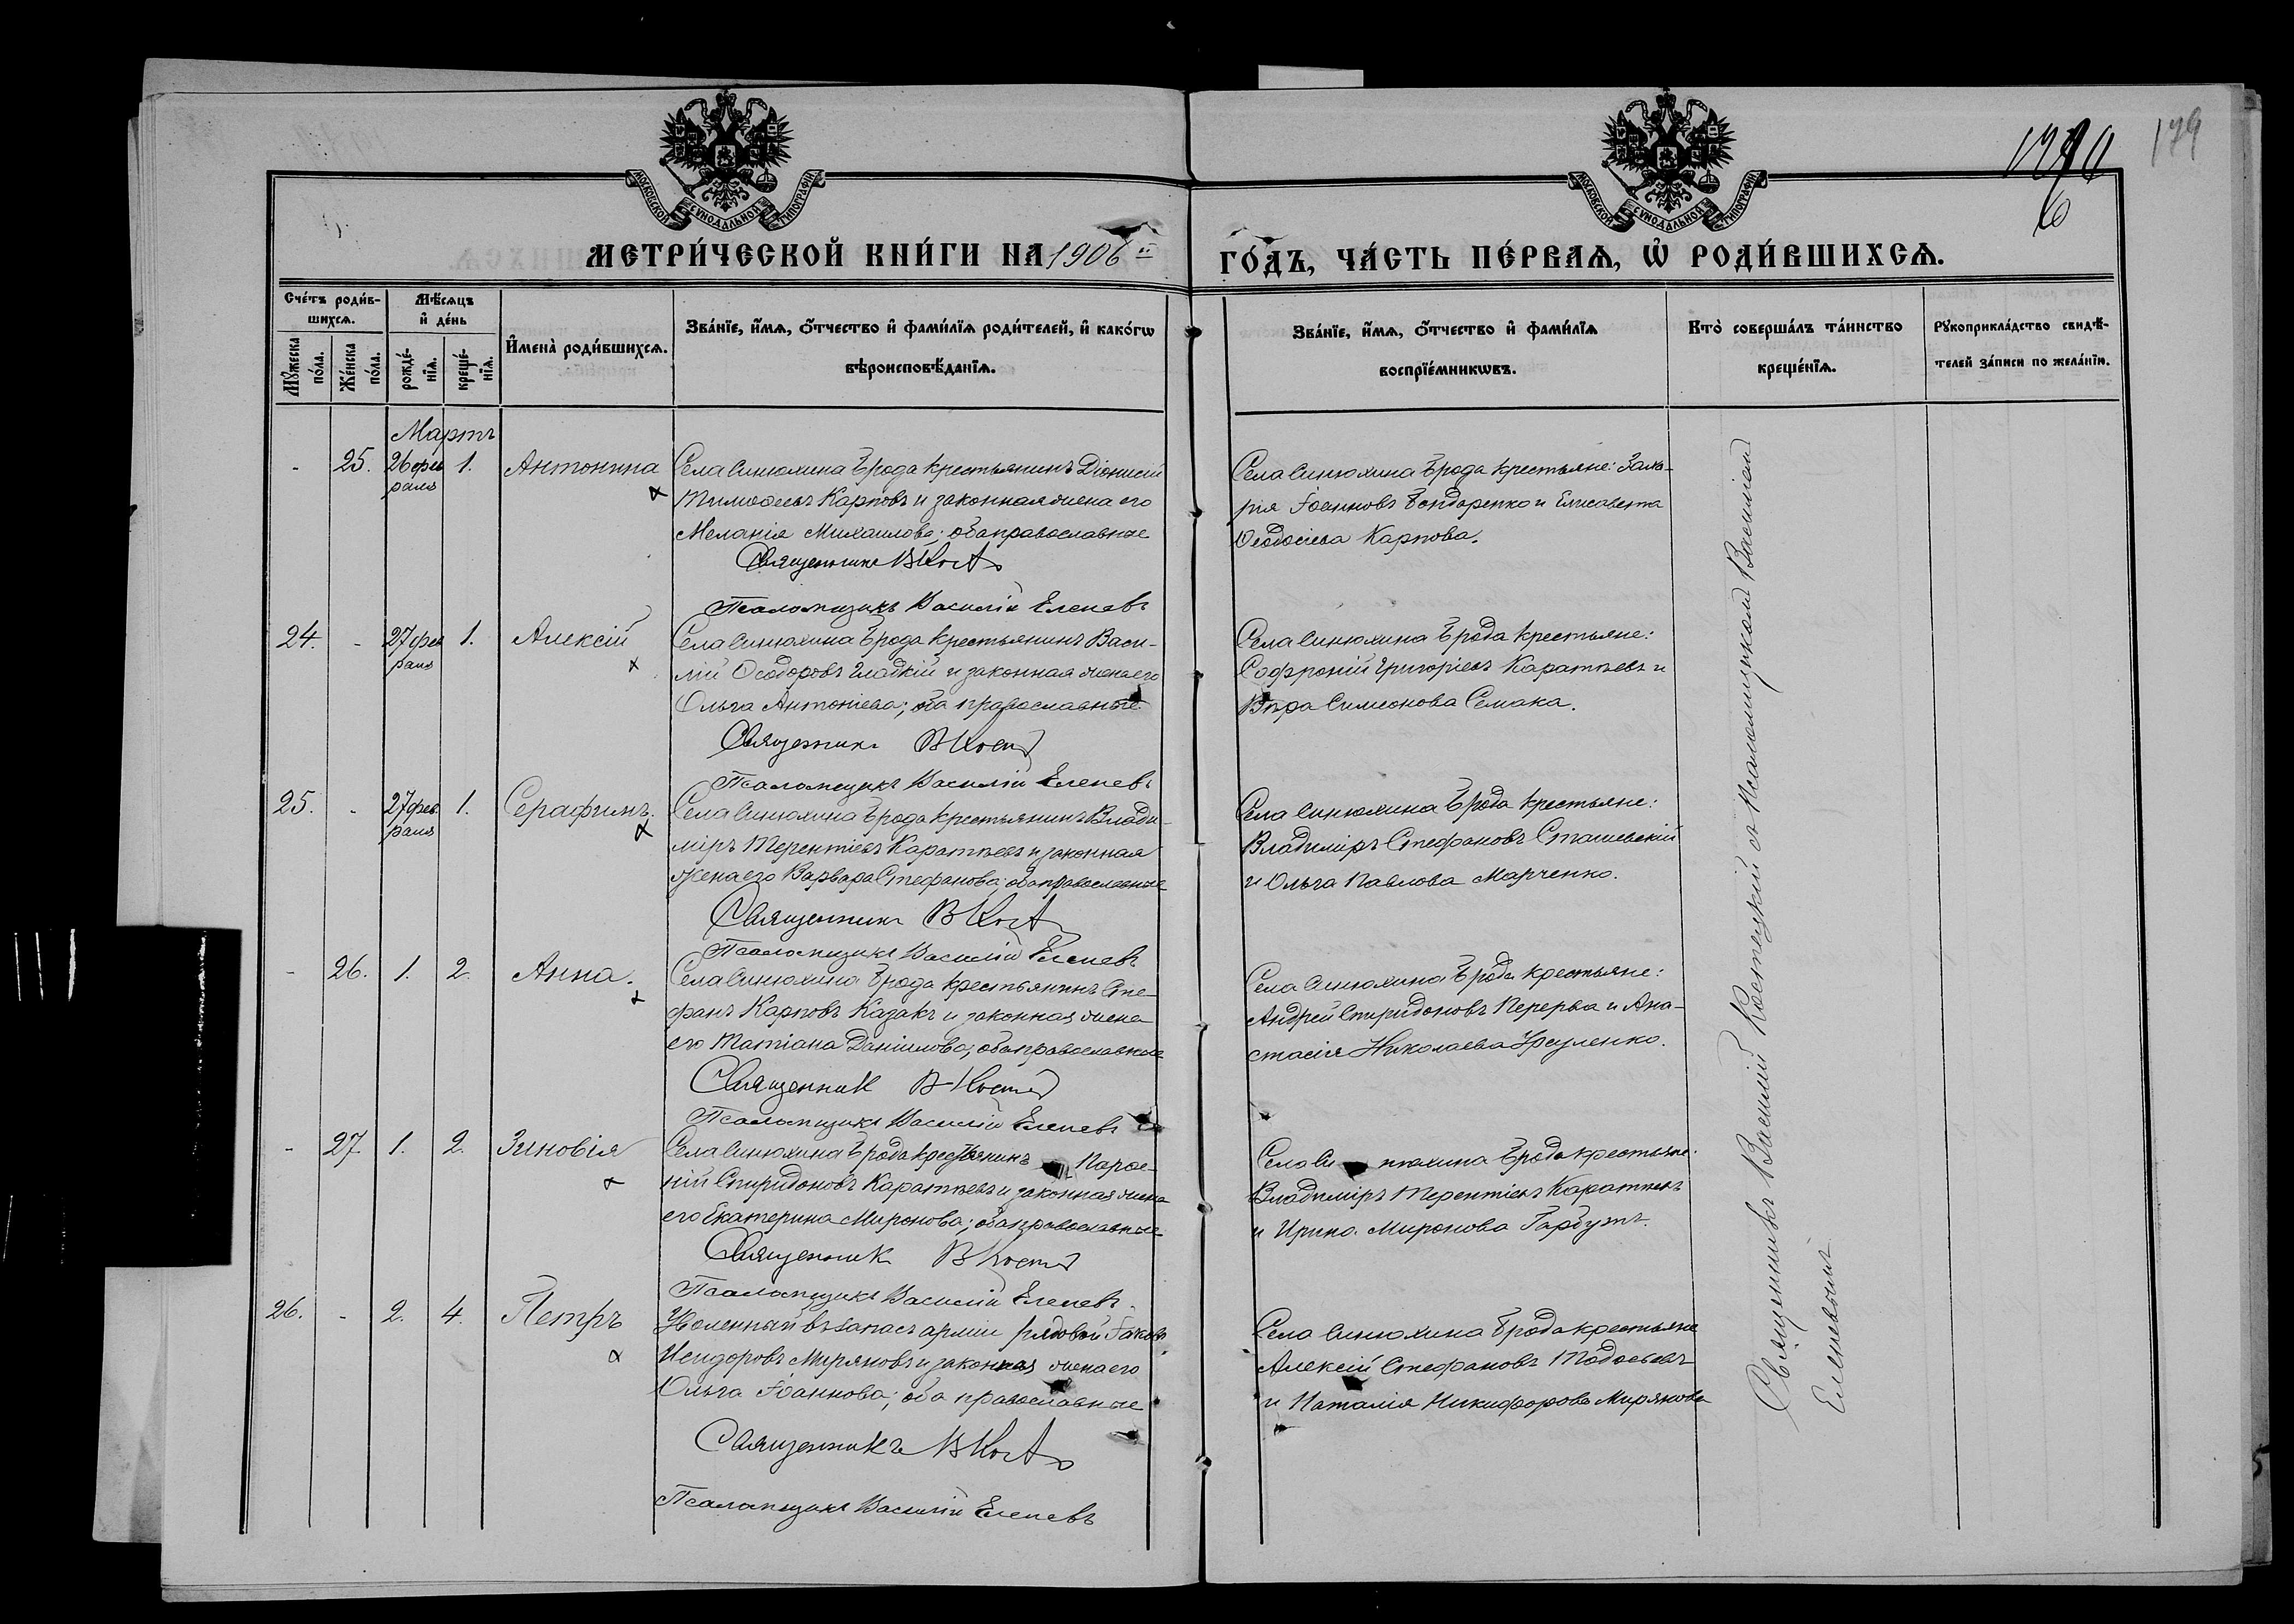 179
6
МОСКОВСКОЙ СѴНОДАЛЬНОЙ ТИПОГРАФІИ
МОСКОВСКОЙ СѴНОДАЛЬНОЙ ТИПОГРАФІИ
МЕТРИ́ЧЕСКОЙ КНИ́ГИ НА 1906й ГО́ДЪ, ЧА́СТЬ ПЕ́РВАѦ, Ѡ҆ РОДИ́ВШИХСѦ.
Сче́тъ роди́в-
шихсѧ.
Мꙋ́жеска по́ла.
Же́нска по́ла.
Мѣ́сѧцъ
и҆ де́нь
рожде́-
нїѧ.
креще́-
нїѧ.
И҆мена̀ роди́вшихсѧ.
Зва́нїе, и҆́мѧ, ѻ҆́тчество и҆ фами́лїѧ роди́телей, и҆ како́гѡ
вѣроисповѣ́данїѧ.
Зва́нїе, и҆́мѧ, ѻ҆́тчество и҆ фами́лїѧ
воспрїе́мникѡвъ.
Кто̀ соверша́лъ та́инство
креще́нїѧ.
Рꙋкоприкла́дство свидѣ́-
телей за́писи по жела́нїю.
Мартъ
- 25. 26 фев
раля 1. Антонина
Села Синюхина Брода крестьянинъ Діонисій
Тимоѳеевъ Карповъ и законная жена его
Меланія Михаилова; оба православные
Священникъ В Кост
Псаломщикъ Василій Еленевъ
Села Синюхина Брода крестьяне: Заха-
рія Іоанновъ Бондаренко и Елисавета
Ѳеодосіева Карпова.
24. - 27 фев
раля 1. Алексій
Села Синюхина Брода крестьянинъ Васи-
лій Ѳеодоровъ Гладкій и законная жена его
Ольга Антоніева; оба православные
Священникъ В Кост
Псаломщикъ Василій Еленевъ
Села Синюхина Брода крестьяне:
Софроній Григоріевъ Каратѣевъ и
Вѣра Симеонова Семака.
25. - 27 фев
раля 1. Серафимъ.
Села Синюхина Брода крестьянинъ Влади-
міръ Терентіевъ Каратѣевъ и законная
жена его Варвара Стефанова; оба православные
Священникъ В Кост
Псаломщикъ Василій Еленевъ
Села Синюхина Брода крестьяне:
Владиміръ Стефановъ Сташевскій
и Ольга Павлова Марченко.
- 26. 1. 2. Анна.
Села Синюхина Брода крестьянинъ Сте-
фанъ Карповъ Казакъ и законная жена
его Татіана Даніилова; оба православные
Священник В Кост
Псаломщикъ Василій Еленевъ
Села Синюхина Брода крестьяне:
Андрей Спиридоновъ Перерва и Ана-
стасія Николаева Урсуленко.
- 27. 1. 2. Зиновія
Села Синюхина Брода крестьянинъ Парѳе-
ній Спиридоновъ Каратѣевъ и законная жена
его Екатерина Миронова; оба православные
Священник В Кост
Псаломщикъ Василій Еленевъ
Села Синюхина Брода крестьяне:
Владиміръ Терентіевъ Каратѣевъ
и Ирина Миронова Гарбузъ.
26. - 2. 4. Петръ
Уволенный въ запасъ арміи рядовой Іаковъ
Исидоровъ Миряновъ и законная жена его
Ольга Іоаннова; оба православные
Священникъ В Кост
Псаломщикъ Василій Еленевъ
Села Синюхина Брода крестьяне
Алексій Стефановъ Тодосьевъ
и Наталія Никифорова Мирянова
Священникъ Василій Костецкій съ псаломщикомъ Василіемъ
Еленевымъ